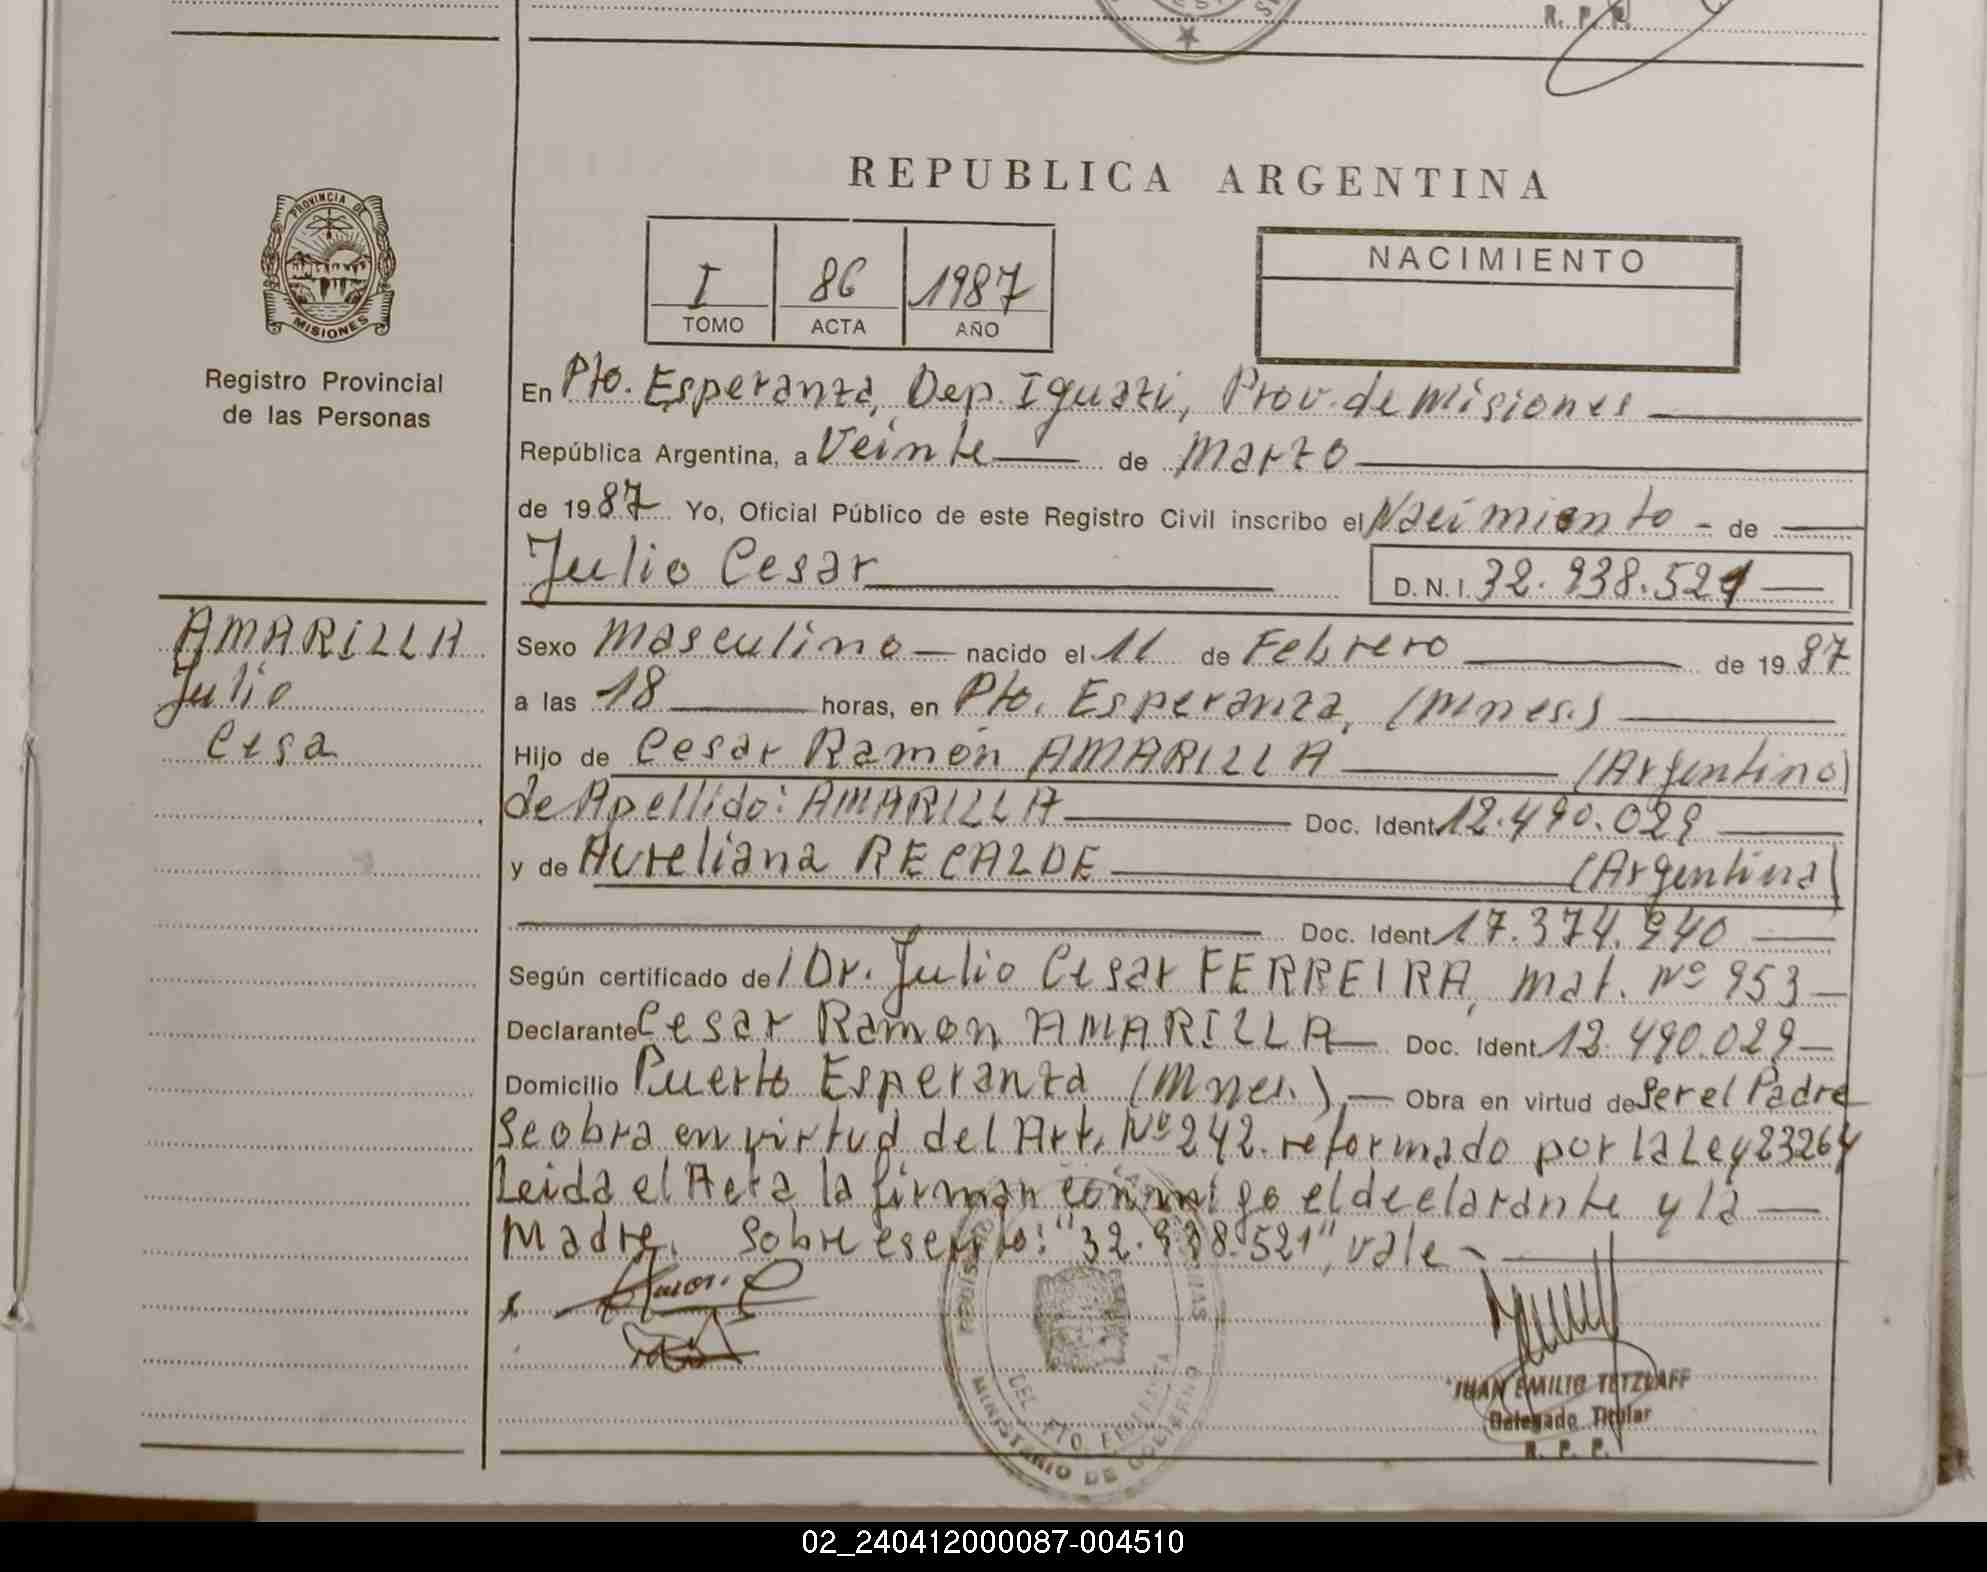 R. P. P.
REPUBLICA ARGENTINA
PROVINCIA DE
MISIONES
Registro Provincial
de las Personas
I 86 1987
TOMO ACTA AÑO
NACIMIENTO
En Pto. Esperanza, Dep. Iguazi, Prov. de Misiones
República Argentina, a Veinte de Marzo
de 1987 Yo, Oficial Público de este Registro Civil inscribo el Nacimiento - de
Julio Cesar D.N.I. 32.938.521
AMARILLA
Julio
Cesa
Sexo Masculino nacido el 11 de Febrero de 1987
a las 18 horas, en Pto. Esperanza, (Mnes.)
Hijo de Cesar Ramón AMARILLA (Argentino)
de Apellido: AMARILLA Doc. Ident. 12.490.029
y de Aureliana RECALDE (Argentina)
Doc. Ident. 17.374.940
Según certificado de / Dr. Julio Cesar FERREIRA, Mat. Nº 953
Declarante Cesar Ramon AMARILLA Doc. Ident. 12.490.029
Domicilio Puerto Esperanza (Mnes.), Obra en virtud de Ser el Padre
Se obra en virtud del Art. Nº 242. reformado por la Ley 23264
Leida el Acta la firman conmigo el declarante y la
Madre. Sobre escrito: "32.938.521", vale -
JUAN EMILIO TETZLAFF
Delegado Titular
R. P. P.
MINISTERIO DE GOBIERNO
02_240412000087-004510